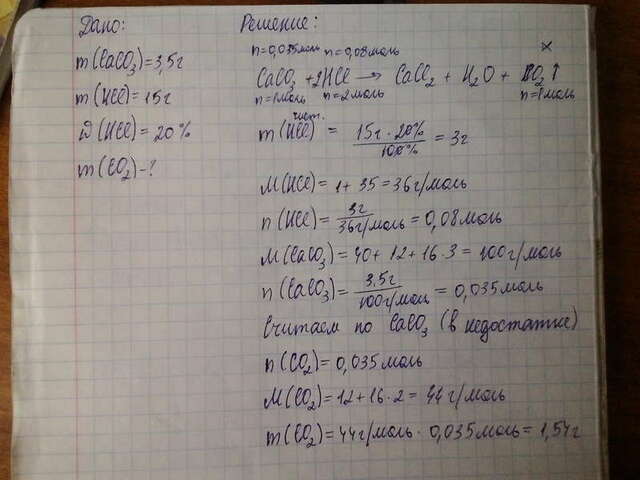 Дано:
m(CaCO₃)=3,5г
m(HCl)=15г
W(HCl)=20%
m(CO₂)-?
Решение:
n=0,035моль n=0,08моль x
CaCO₃ +2HCl → CaCl₂ + H₂O + CO₂↑
n=1моль n=2моль n=1моль
чист.
m(HCl) = 15г · 20% / 100% = 3г
M(HCl)= 1+ 35=36г/моль
n(HCl)= 3г / 36г/моль = 0,08моль
M(CaCO₃)=40+12+16·3=100г/моль
n(CaCO₃)= 3,5г / 100г/моль = 0,035моль
Считаем по CaCO₃ (в недостатке)
n(CO₂)=0,035моль
M(CO₂)=12+16·2= 44 г/моль
m(CO₂)=44г/моль · 0,035моль=1,54г